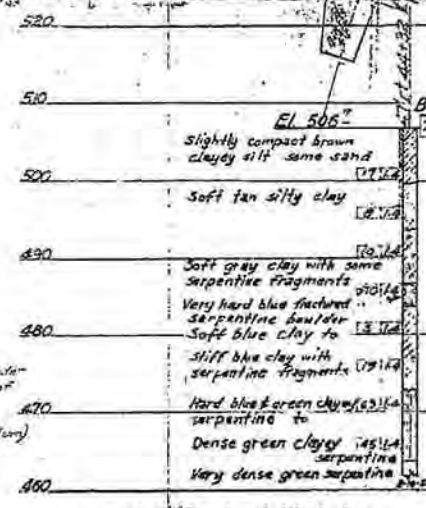 520
510
B
El. 506.7
Slightly compact brown
clayey silt some sand
17 1.4
500
Soft tan silty clay
1.4
490
Soft gray clay with some
serpentine fragments
1.4
Very hard blue fractured
serpentine boulder
480
Soft blue clay to
1.4
Stiff blue clay with
serpentine fragments
19 1.4
470
Hard blue & green clayey 63 1.4
serpentine to
Dense green clayey 45 1.4
serpentine
Very dense green serpentine
460